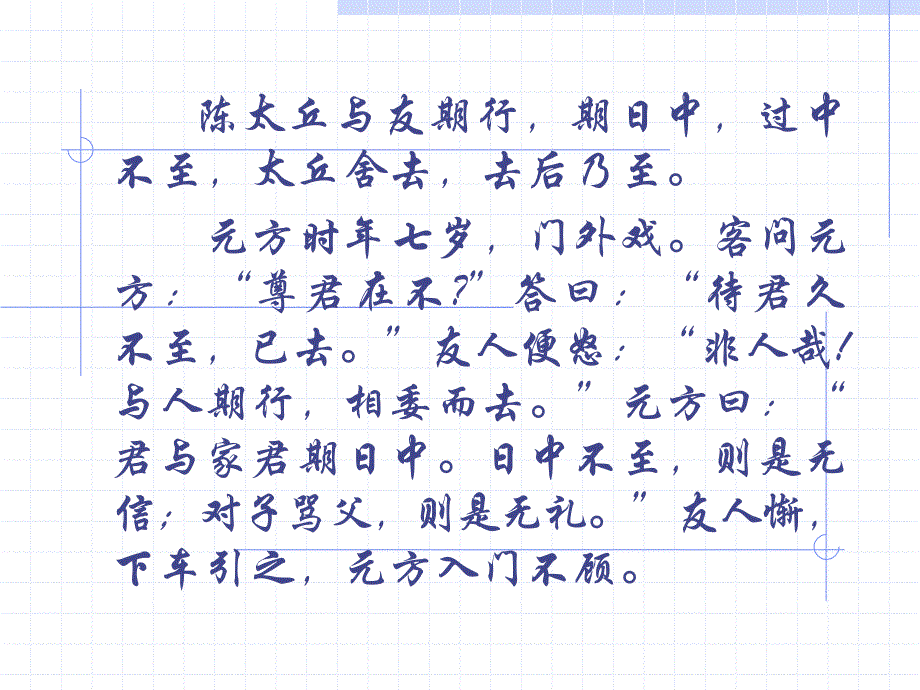 陈太丘与友期行，期日中，过中
不至，太丘舍去，去后乃至。
元方时年七岁，门外戏。客问元
方：“尊君在不?”答曰：“待君久
不至，已去。”友人便怒：“非人哉!
与人期行，相委而去。”元方曰：“
君与家君期日中。日中不至，则是无
信；对子骂父，则是无礼。”友人惭，
下车引之，元方入门不顾。